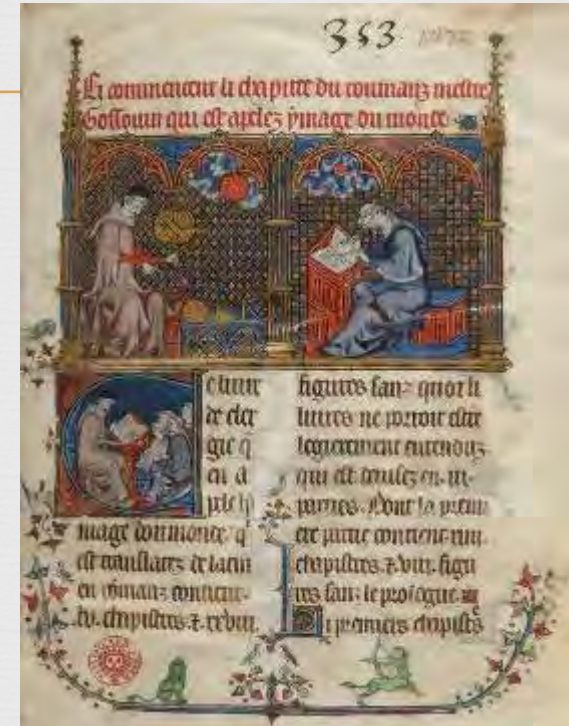 353
Ci commencent li chapitre du roumanz mestre
Gossouin qui est apelez ymage du monde
Ce liure
de cler
gie q̄
en a
pele ly
mage dou monde q̄
est translatez de latin
en romanz contient
lv. chapistres. ⁊ xxviii.
figures sanz quoi li
liures ne porroit estre
legierement entenduz
qui est deuisez en. iii.
parties. Dont la premi
ere partie contient xiiii.
chapistres. ⁊ viii. figu
res sanz le prologue
Li premiers chapistres